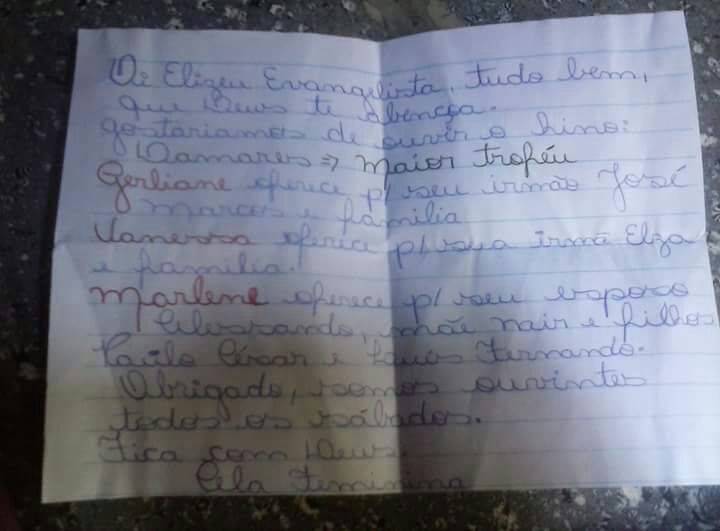 Oi Elizeu Evangelista, tudo bem,
que Deus te abençoa.
gostariamos de ouvir o hino:
Damares => maior troféu
Gerliane oferece p/ seu irmão José
marcos e família
Vanessa oferece p/ sua irmã Elza
e família.
marlene oferece p/ seu esposo
mãe nair e filhos
Paulo César e Fernando.
Obrigado, somos ouvintes
todos os sábados.
Fica com Deus.
Cela Feminina